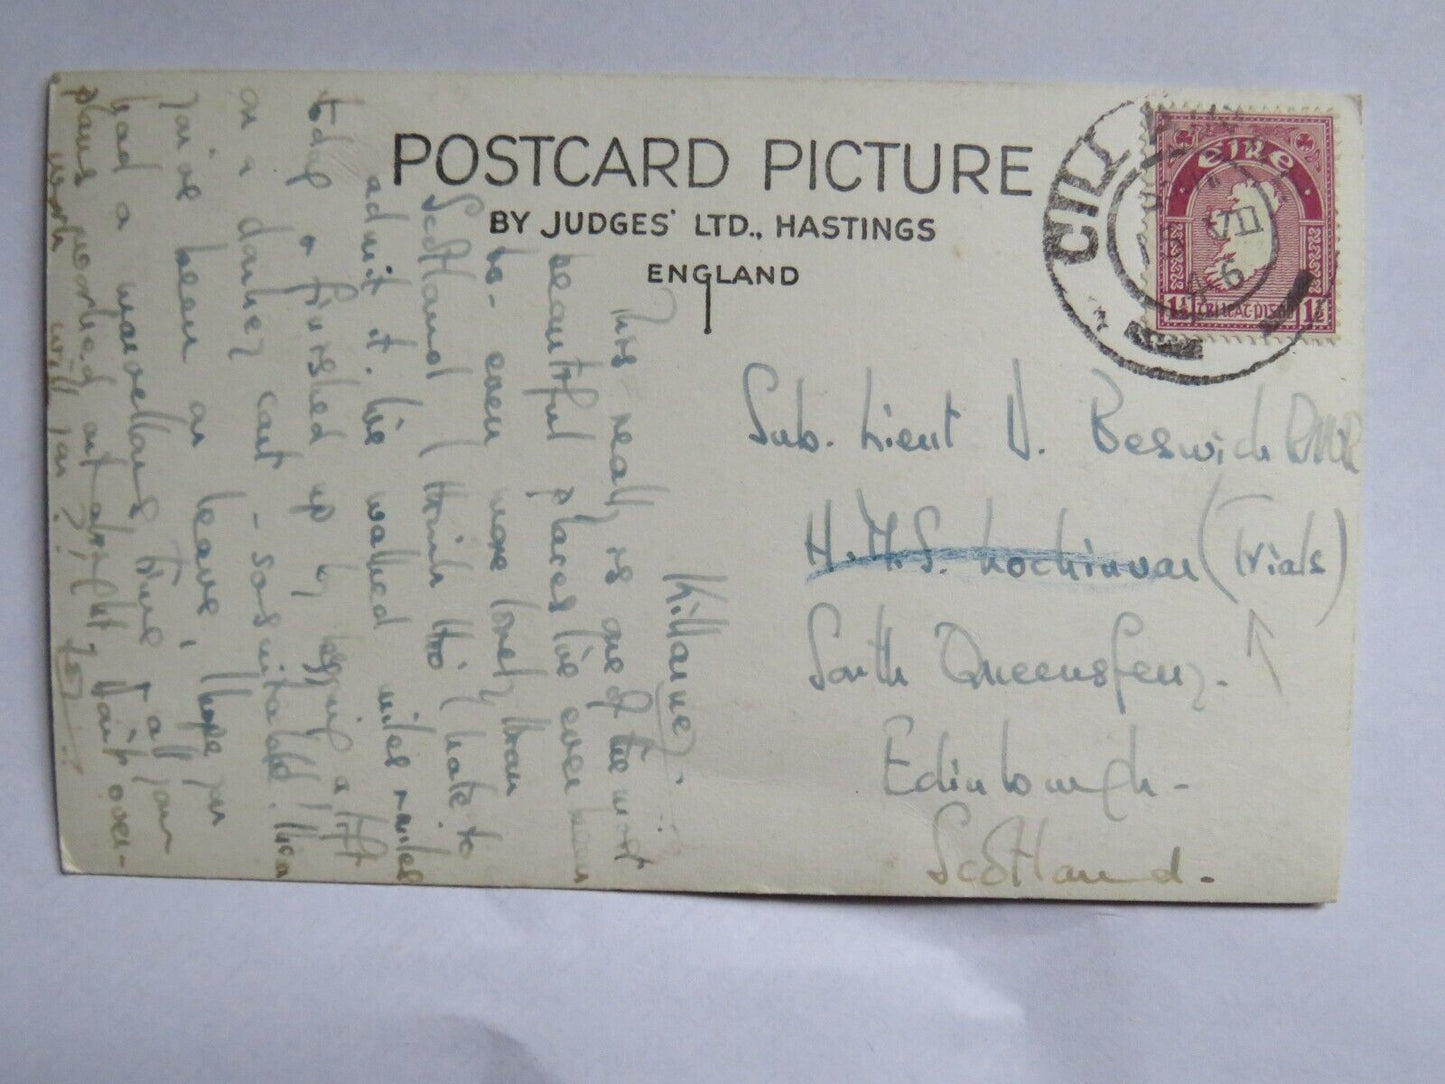 POSTCARD PICTURE
BY JUDGES' LTD., HASTINGS
ENGLAND
CILL
VII
46
EIRE
1½ 1½
Sub. Lieut D. Beswick
H.M.S. Lochinvar (Trials)
South Queensferry.
Edinburgh -
Scotland.
Killarney.
This really is one of the most
beautiful places I've ever been
to - even more lovely than
Scotland I think tho' I hate to
admit it. We walked miles & miles
today & finished up by begging a lift
on a donkey cart - so suitable! Hi
You've been on leave, I hope you
had a marvellous time & all your
plans worked out alright, Don't over-
work will you?!!